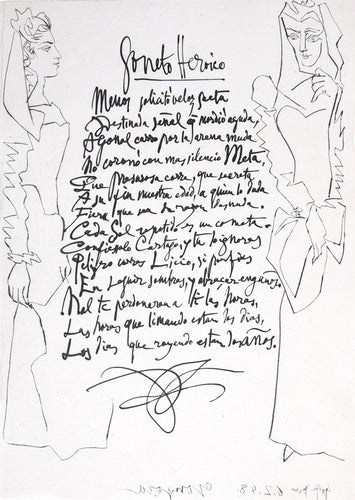 Soneto Heroico
Menos solicitó veloz saeta
Destinada señal q mordió aguda,
Agonal carro por la arena muda
No coronó con mas silencio Meta,
Que presurosa corre, que secreta
A su fin nuestra edad, a quien lo duda
Fiera que sea de razon desnuda.
Cada Sol repetido es un cometa.
Confiesalo Cartago, y tu lo ignoras
Peligro corres Licio, si porfias
En seguir sombras, y abrazar engaños.
Mal te perdonaran a ti las horas,
Las horas que limando estan los dias,
Los dias que royendo estan los años.
6.2.48. Gongora